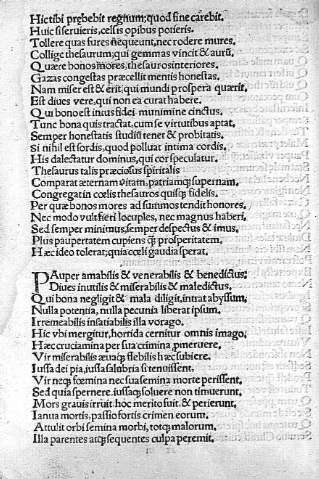 Hic tibi prębebit regnum; quod fine carebit.
Huic si seruieris, celsis opibus potieris.
Tollere quas fures nequeunt, nec rodere mures.
Collige thesaurum, qui gemmas vincit & aurū.
Quære bonos mores, thesauros interiores.
Gazas congestas præcellit mentis honestas.
Nam miser est & erit; qui mundi prospera quærit.
Est diues vere, qui non ea curat habere.
Qui bono est intus fidei munimine cinctus,
Tunc bona quis tractat, cum se virtutibus aptat.
Semper honestatis studiū tenet & probitatis.
Si nihil est sordis, quod polluat intima cordis.
His dalectatur dominus, qui cor speculatur.
Thesaurus talis præciosus spiritalis
Comparat æternam vitam, patriamq; supernam.
Congregat in cœlis thesauros quisq; fidelis.
Per quæ bonos mores ad summos tendit honores.
Nec modo vult fieri locuples, nec magnus haberi,
Sed semper minimus, semper despectus & imus,
Plus paupertatem cupiens q̄ prosperitatem.
Hæc ideo tolerat; quia cœli gaudia sperat.
PAuper amabilis & venerabilis & benedictus;
Diues inutilis & miserabilis & maledictus,
Qui bona negligit & mala diligit, intrat abyssum,
Nulla potentia, nulla pecunia liberat ipsum.
Irremeabilis insatiabilis illa vorago.
Hic vbi mergitur, horrida cernitur omnis imago,
Hæc cruciamina per sua crimina, pmeruere.
Vir miserabilis æuaq; flebilis hæc subiere.
Iussa dei pia, iussa salubria si tenuissent.
Vir neq; fœmina nec sua semina morte perissent,
Sed quia spernere, iussaq; soluere non timuerunt.
Mors grauis irruit hoc merito fuit & perierunt.
Ianua mortis, passio fortis crimen eorum.
Attulit orbi semina morbi, totq; malorum,
Illa parentes atq; sequentes culpa peremit.